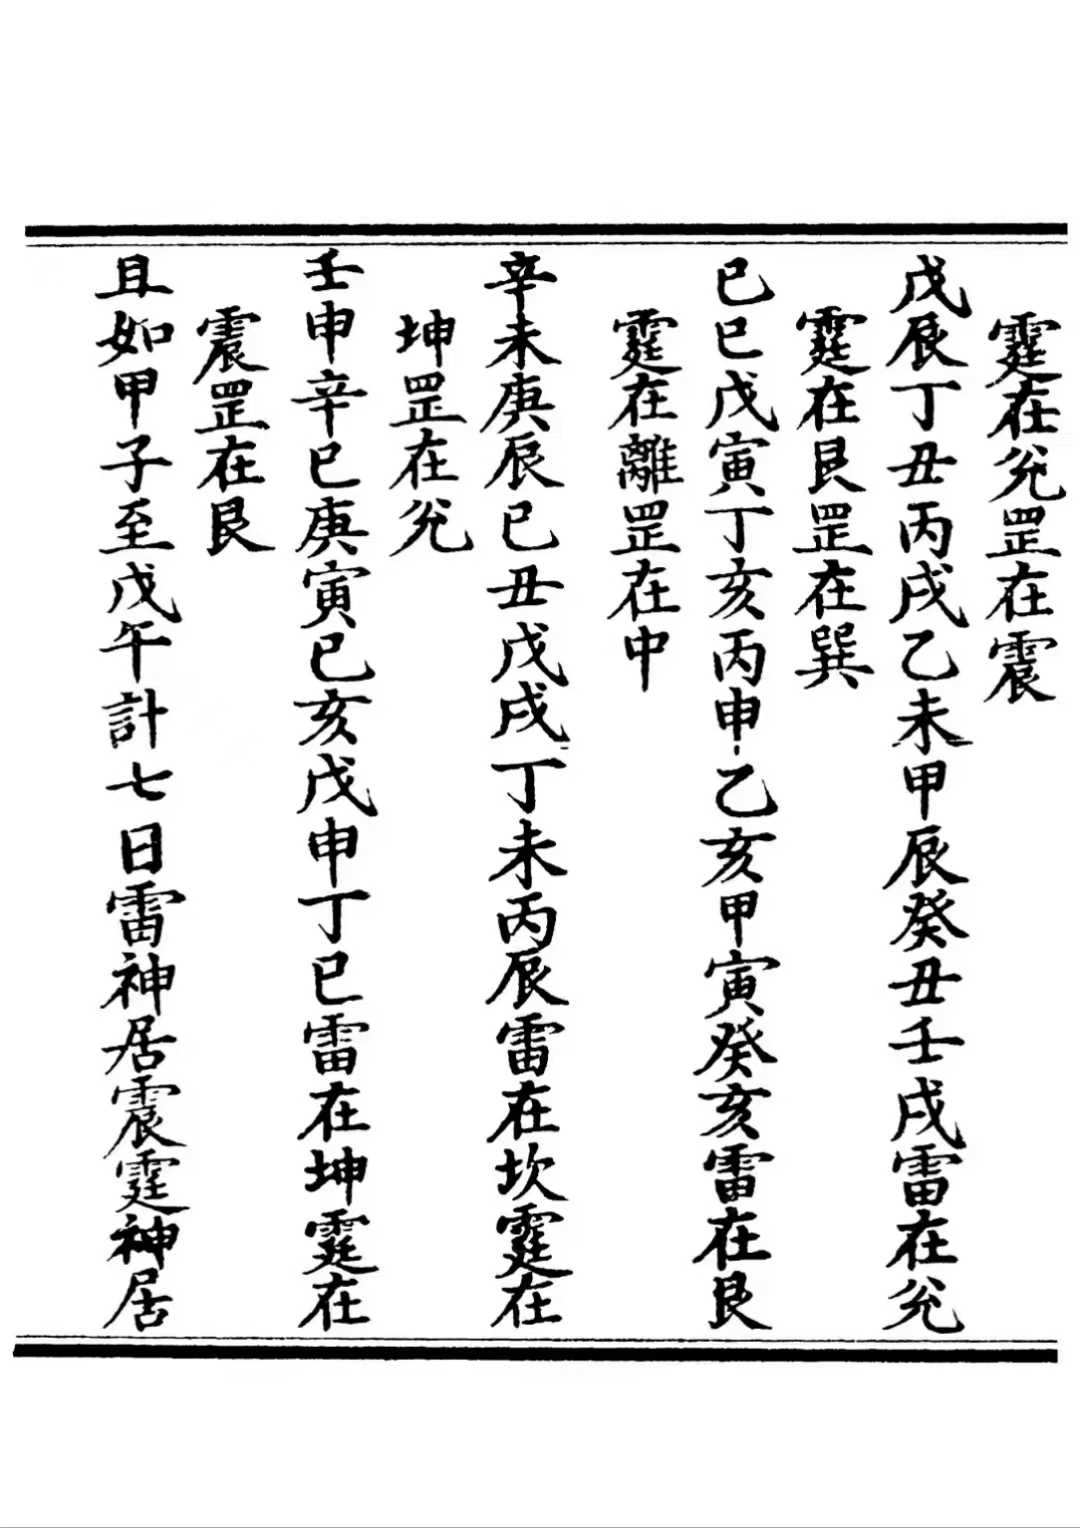 霆在兊罡在震
戊辰丁丑丙戌乙未甲辰癸丑壬戌雷在兊
霆在艮罡在巽
已巳戊寅丁亥丙申乙亥甲寅癸亥雷在艮
霆在離罡在中
辛未庚辰已丑戊戌丁未丙辰雷在坎霆在
坤罡在兊
壬申辛巳庚寅已亥戊申丁巳雷在坤霆在
震罡在艮
且如甲子至戊午計七日雷神居震霆神居